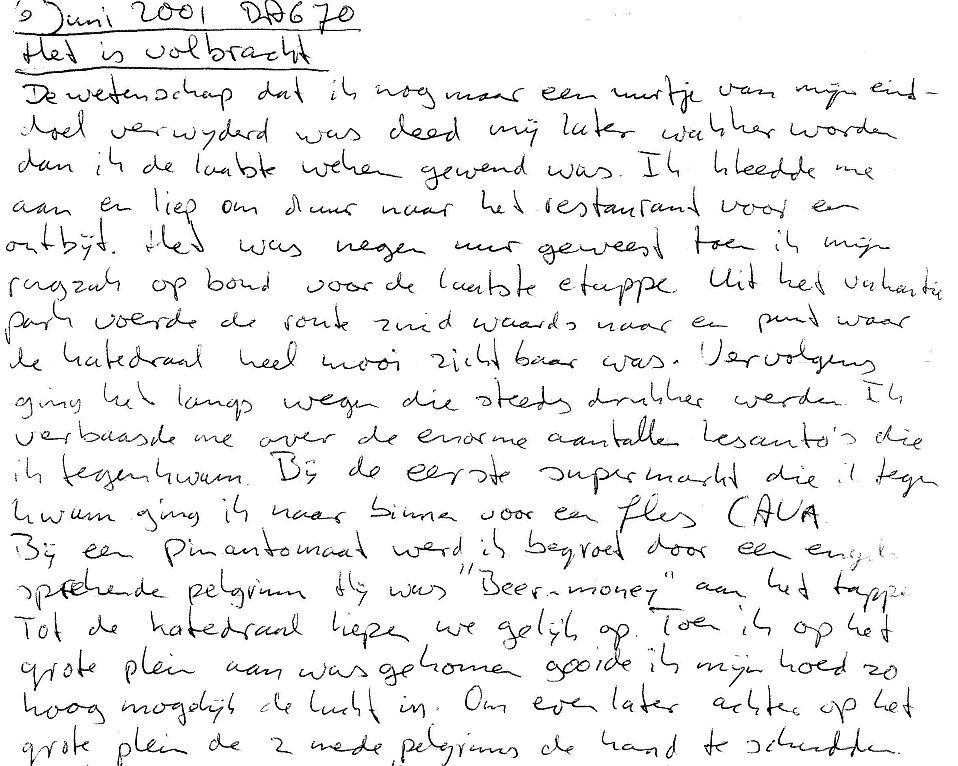 Juni 2001 DAG 70
Het is volbracht
De wetenschap dat ik nog maar een uurtje van mijn eind-
doel verwyderd was deed mij later wakker worden
dan ik de laatste weken gewend was. Ik kleedde me
aan en liep om  naar het restaurant voor een
ontbijt. Het was negen uur geweest toen ik mijn
rugzak op bond voor de laatste etappe. Uit het vakantie
park voerde de route zuid waards naar een punt waar
de katedraal heel mooi zichtbaar was. Vervolgens
ging het langs wegen die steeds drukker werden. Ik
verbaasde me over de enorme aantallen lesauto's die
ik tegenkwam. Bij de eerste supermarkt die ik tegen
kwam ging ik naar binnen voor een fles CAVA
Bij een pinautomaat werd ik begroet door een engels
sprekende pelgrim Hij was "Beer-money" aan het tappen
Tot de katedraal liepen we gelijk op. Toen ik op het
grote plein aan was gekomen gooide ik mijn hoed zo
hoog mogelijk de lucht in. Om even later achter op het
grote plein de 2 mede pelgrims de hand te schudden.